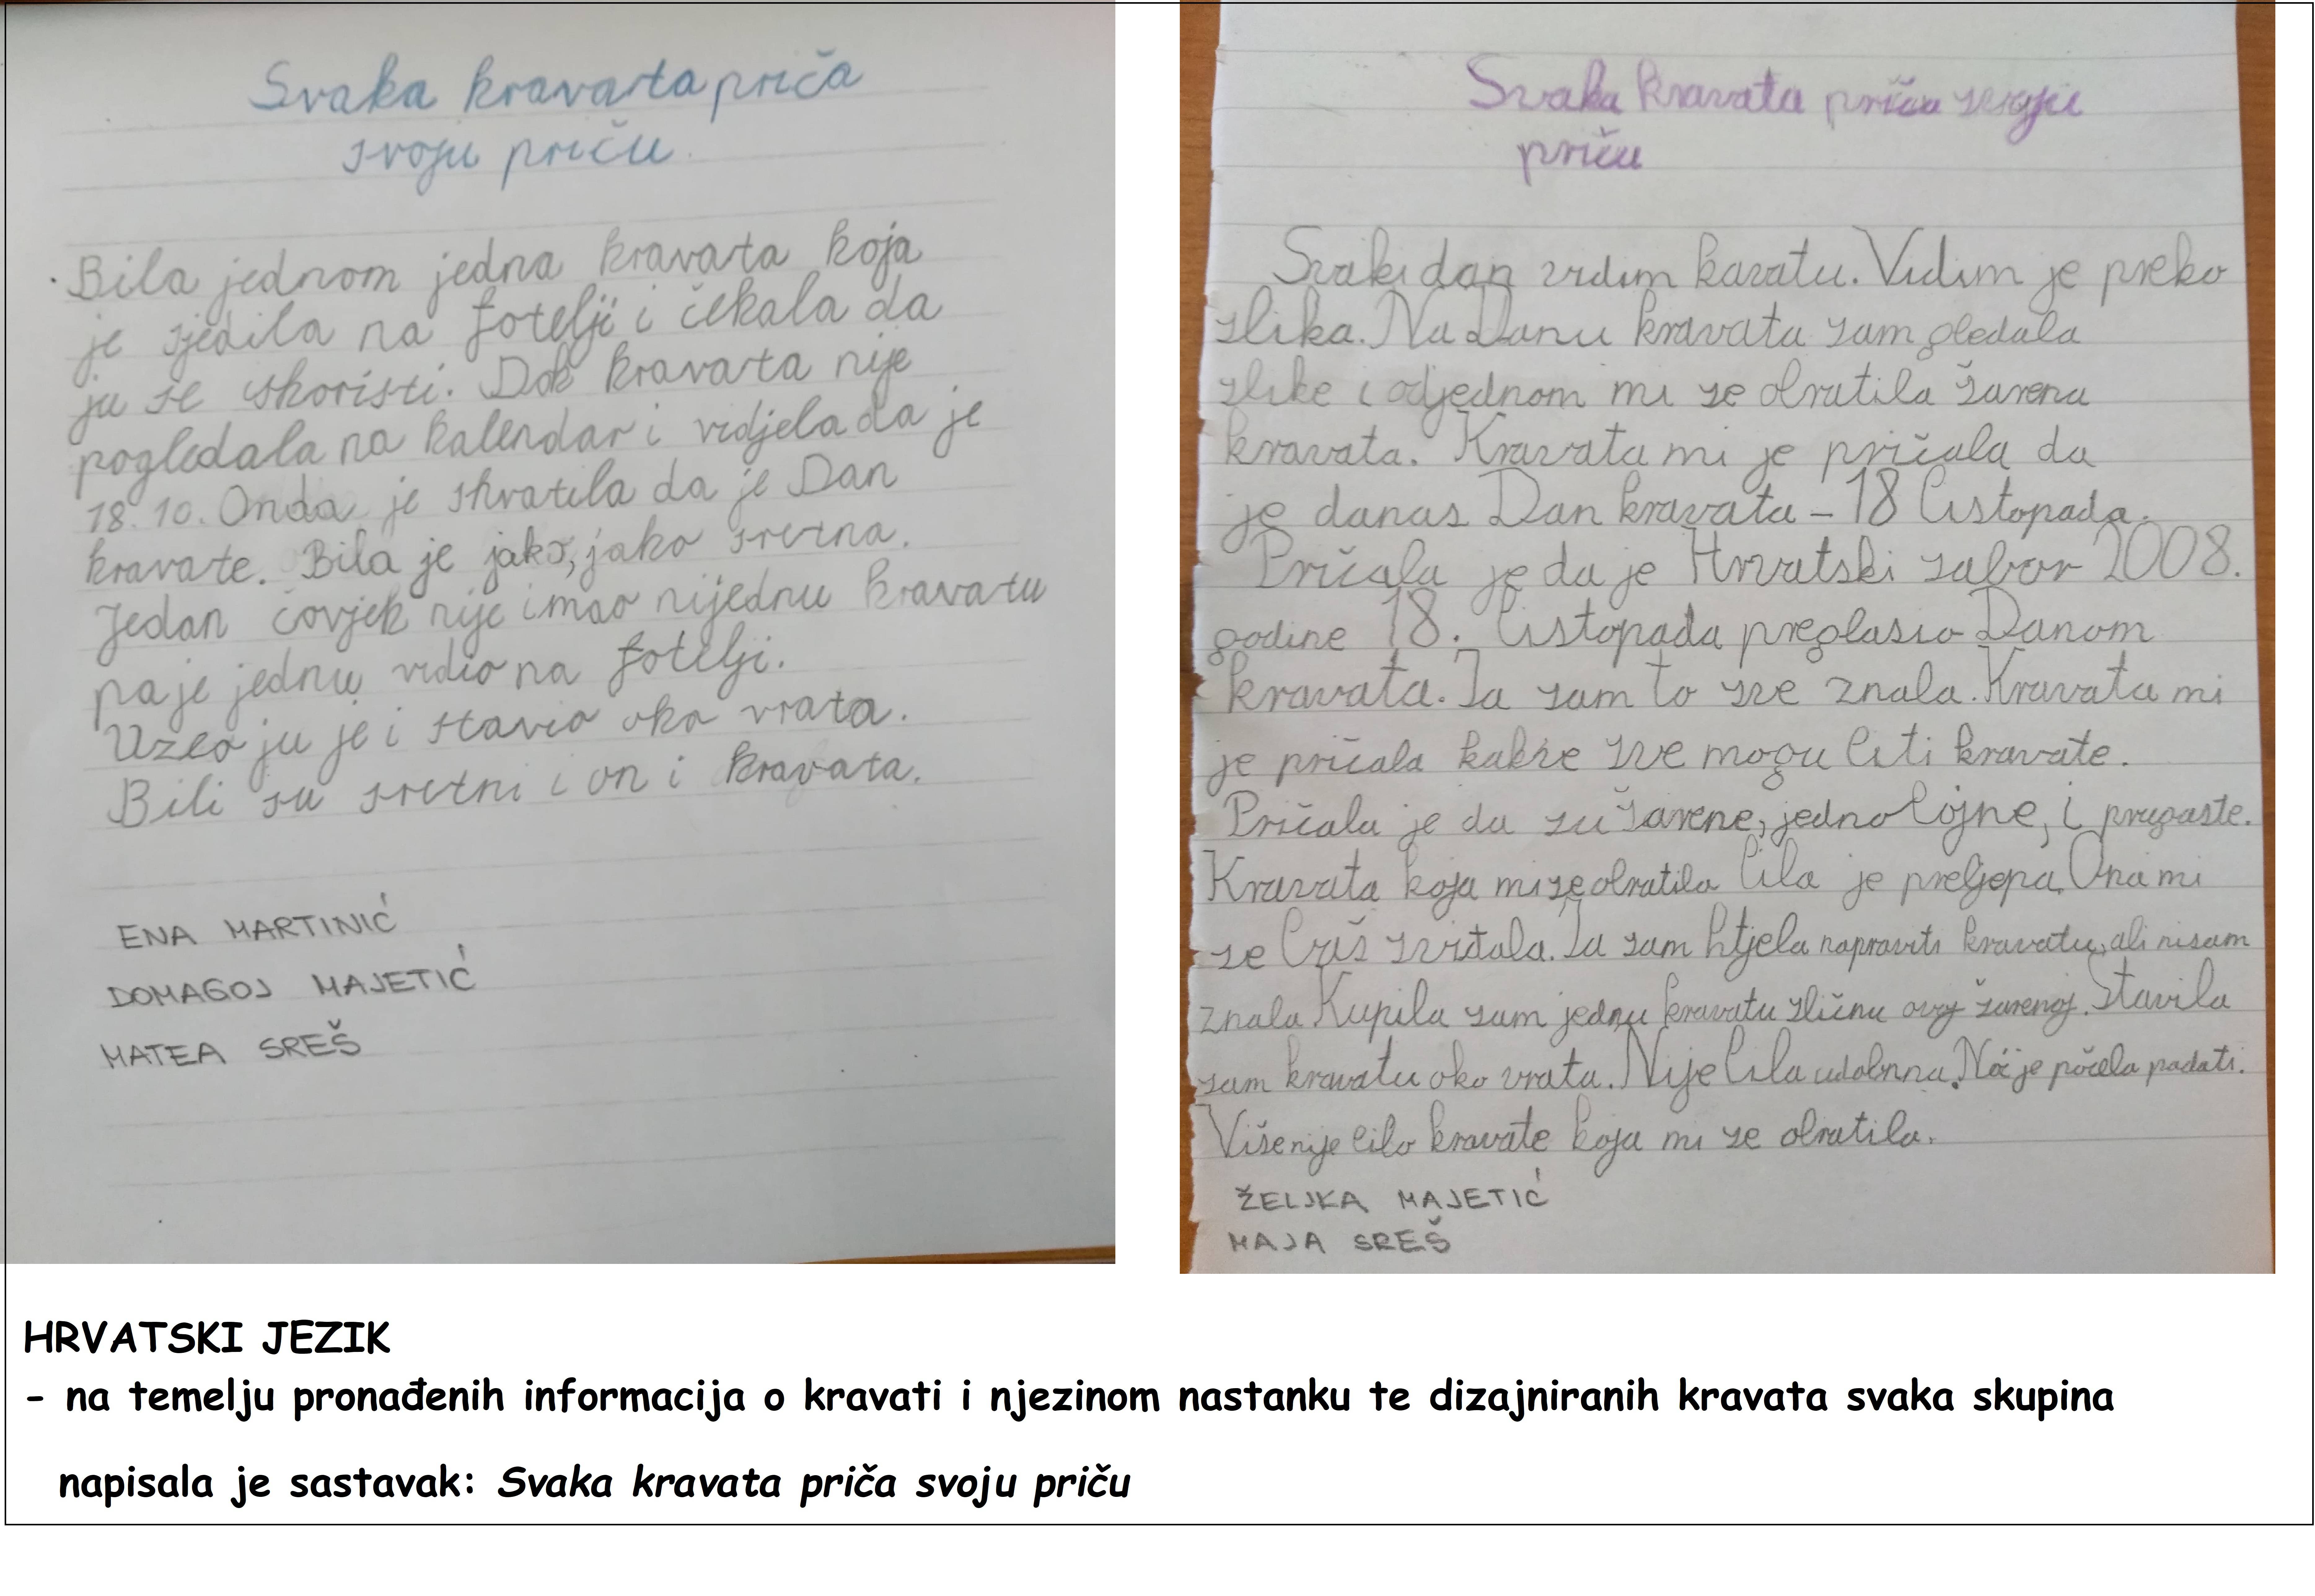 Svaka kravata priča
svoju priču.
Bila jednom jedna kravata koja
je sjedila na fotelji i čekala da
ju se iskoristi. Dok kravata nije
pogledala na kalendar i vidjela da je
18. 10. Onda je shvatila da je Dan
kravate. Bila je jako, jako sretna.
Jedan čovjek nije imao nijednu kravatu
pa je jednu vidio na fotelji.
Uzeo ju je i stavio oko vrata.
Bili su sretni i on i kravata.
ENA MARTINIĆ
DOMAGOJ MAJETIĆ
MATEA SREŠ
Svaka kravata priča svoju
priču
Svaki dan vidim kavatu. Vidim je preko
slika. Na Danu kravata sam gledala
slike i odjednom mi se obratila šarena
kravata. Kravata mi je pričala da
je danas Dan kravata - 18 listopada.
Pričala je da je Hrvatski sabor 2008.
godine 18. listopada proglasio Danom
kravata. Ja sam to sve znala. Kravata mi
je pričala kakve sve mogu biti kravate.
Pričala je da su šarene, jednobojne, i prugaste.
Kravata koja mi se obratila bila je prelijepa. Ona mi
se baš sviđala. Ja sam htjela napraviti kravatu, ali nisam
znala. Kupila sam jednu kravatu sličnu ovoj šarenoj. Stavila
sam kravatu oko vrata. Nije bila udobnna. Noć je počela padati.
Više nije bilo kravate koja mi se obratila.
ŽELJKA MAJETIĆ
MAJA SREŠ
HRVATSKI JEZIK
- na temelju pronađenih informacija o kravati i njezinom nastanku te dizajniranih kravata svaka skupina
napisala je sastavak: Svaka kravata priča svoju priču